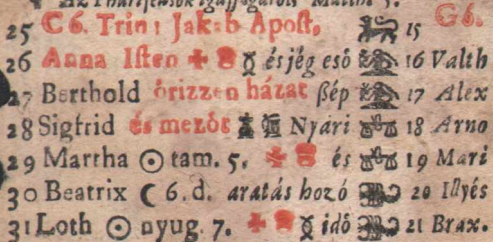 Az Phariseusok igasságáról, Matth. 5. G6.
25 C 6. Trin: Jakab Apost, 15
26 Anna Isten és jég esö 16 Valth
27 Berthold örizzen házat ßép 17 Alex
28 Sigfrid és mezöt Nyári 18 Arno
29 Martha ☉ tam. 5. és 19 Mari
30 Beatrix ☾ 6. d. aratás hozó 20 Illyés
31 Loth ☉ nyug. 7. idö 21 Brax.